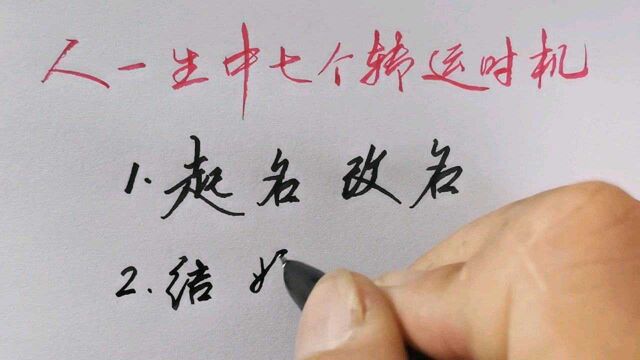 人一生中七个转运时机
1.起名改名
2.结